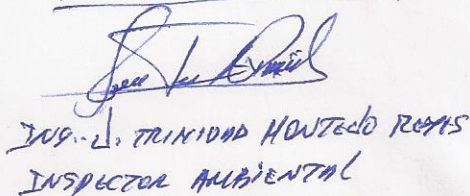 ING. J. TRINIDAD MONTEJO REYES
INSPECTOR AMBIENTAL